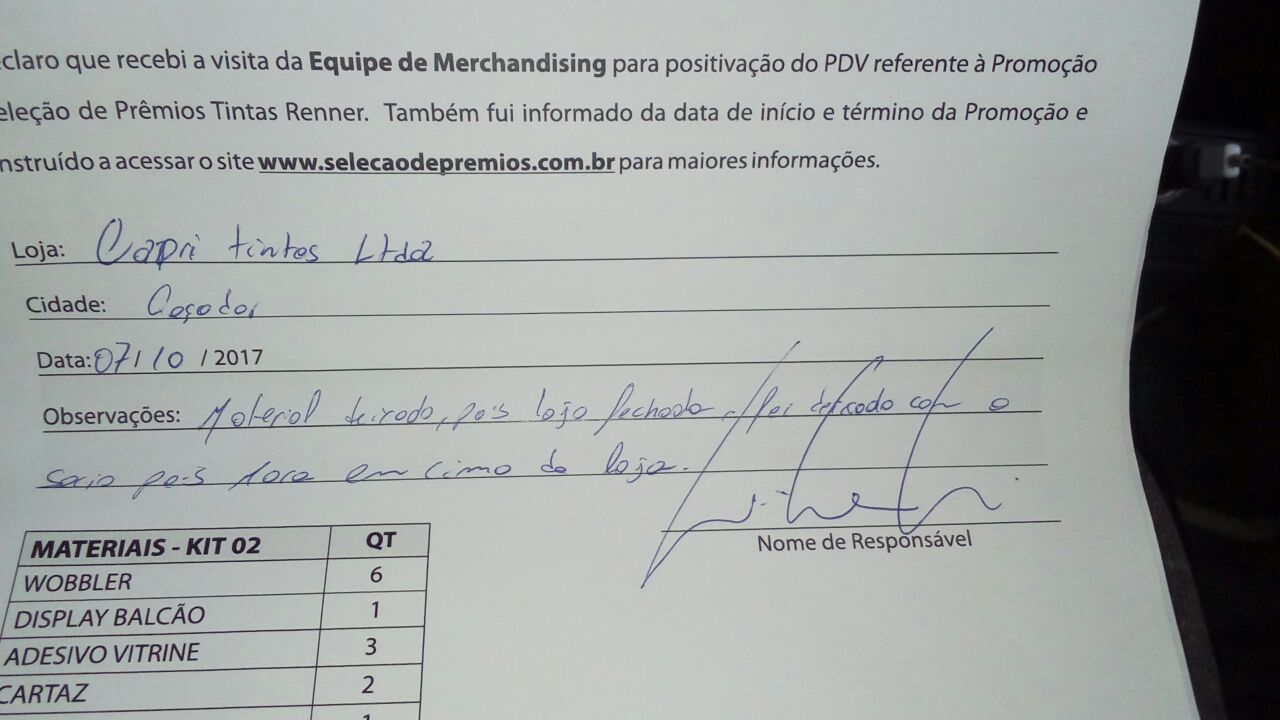 claro que recebi a visita da Equipe de Merchandising para positivação do PDV referente à Promoção
eleção de Prêmios Tintas Renner. Também fui informado da data de início e término da Promoção e
nstruído a acessar o site www.selecaodepremios.com.br para maiores informações.
Loja: Capri tintas Ltda
Cidade: Caçador
Data: 07/10/2017
Observações: Material deixado, pois loja fechada, foi deixado com o
socio pois mora em cima da loja.
Nome de Responsável
MATERIAIS - KIT 02 QT
WOBBLER 6
DISPLAY BALCÃO 1
ADESIVO VITRINE 3
CARTAZ 2
1